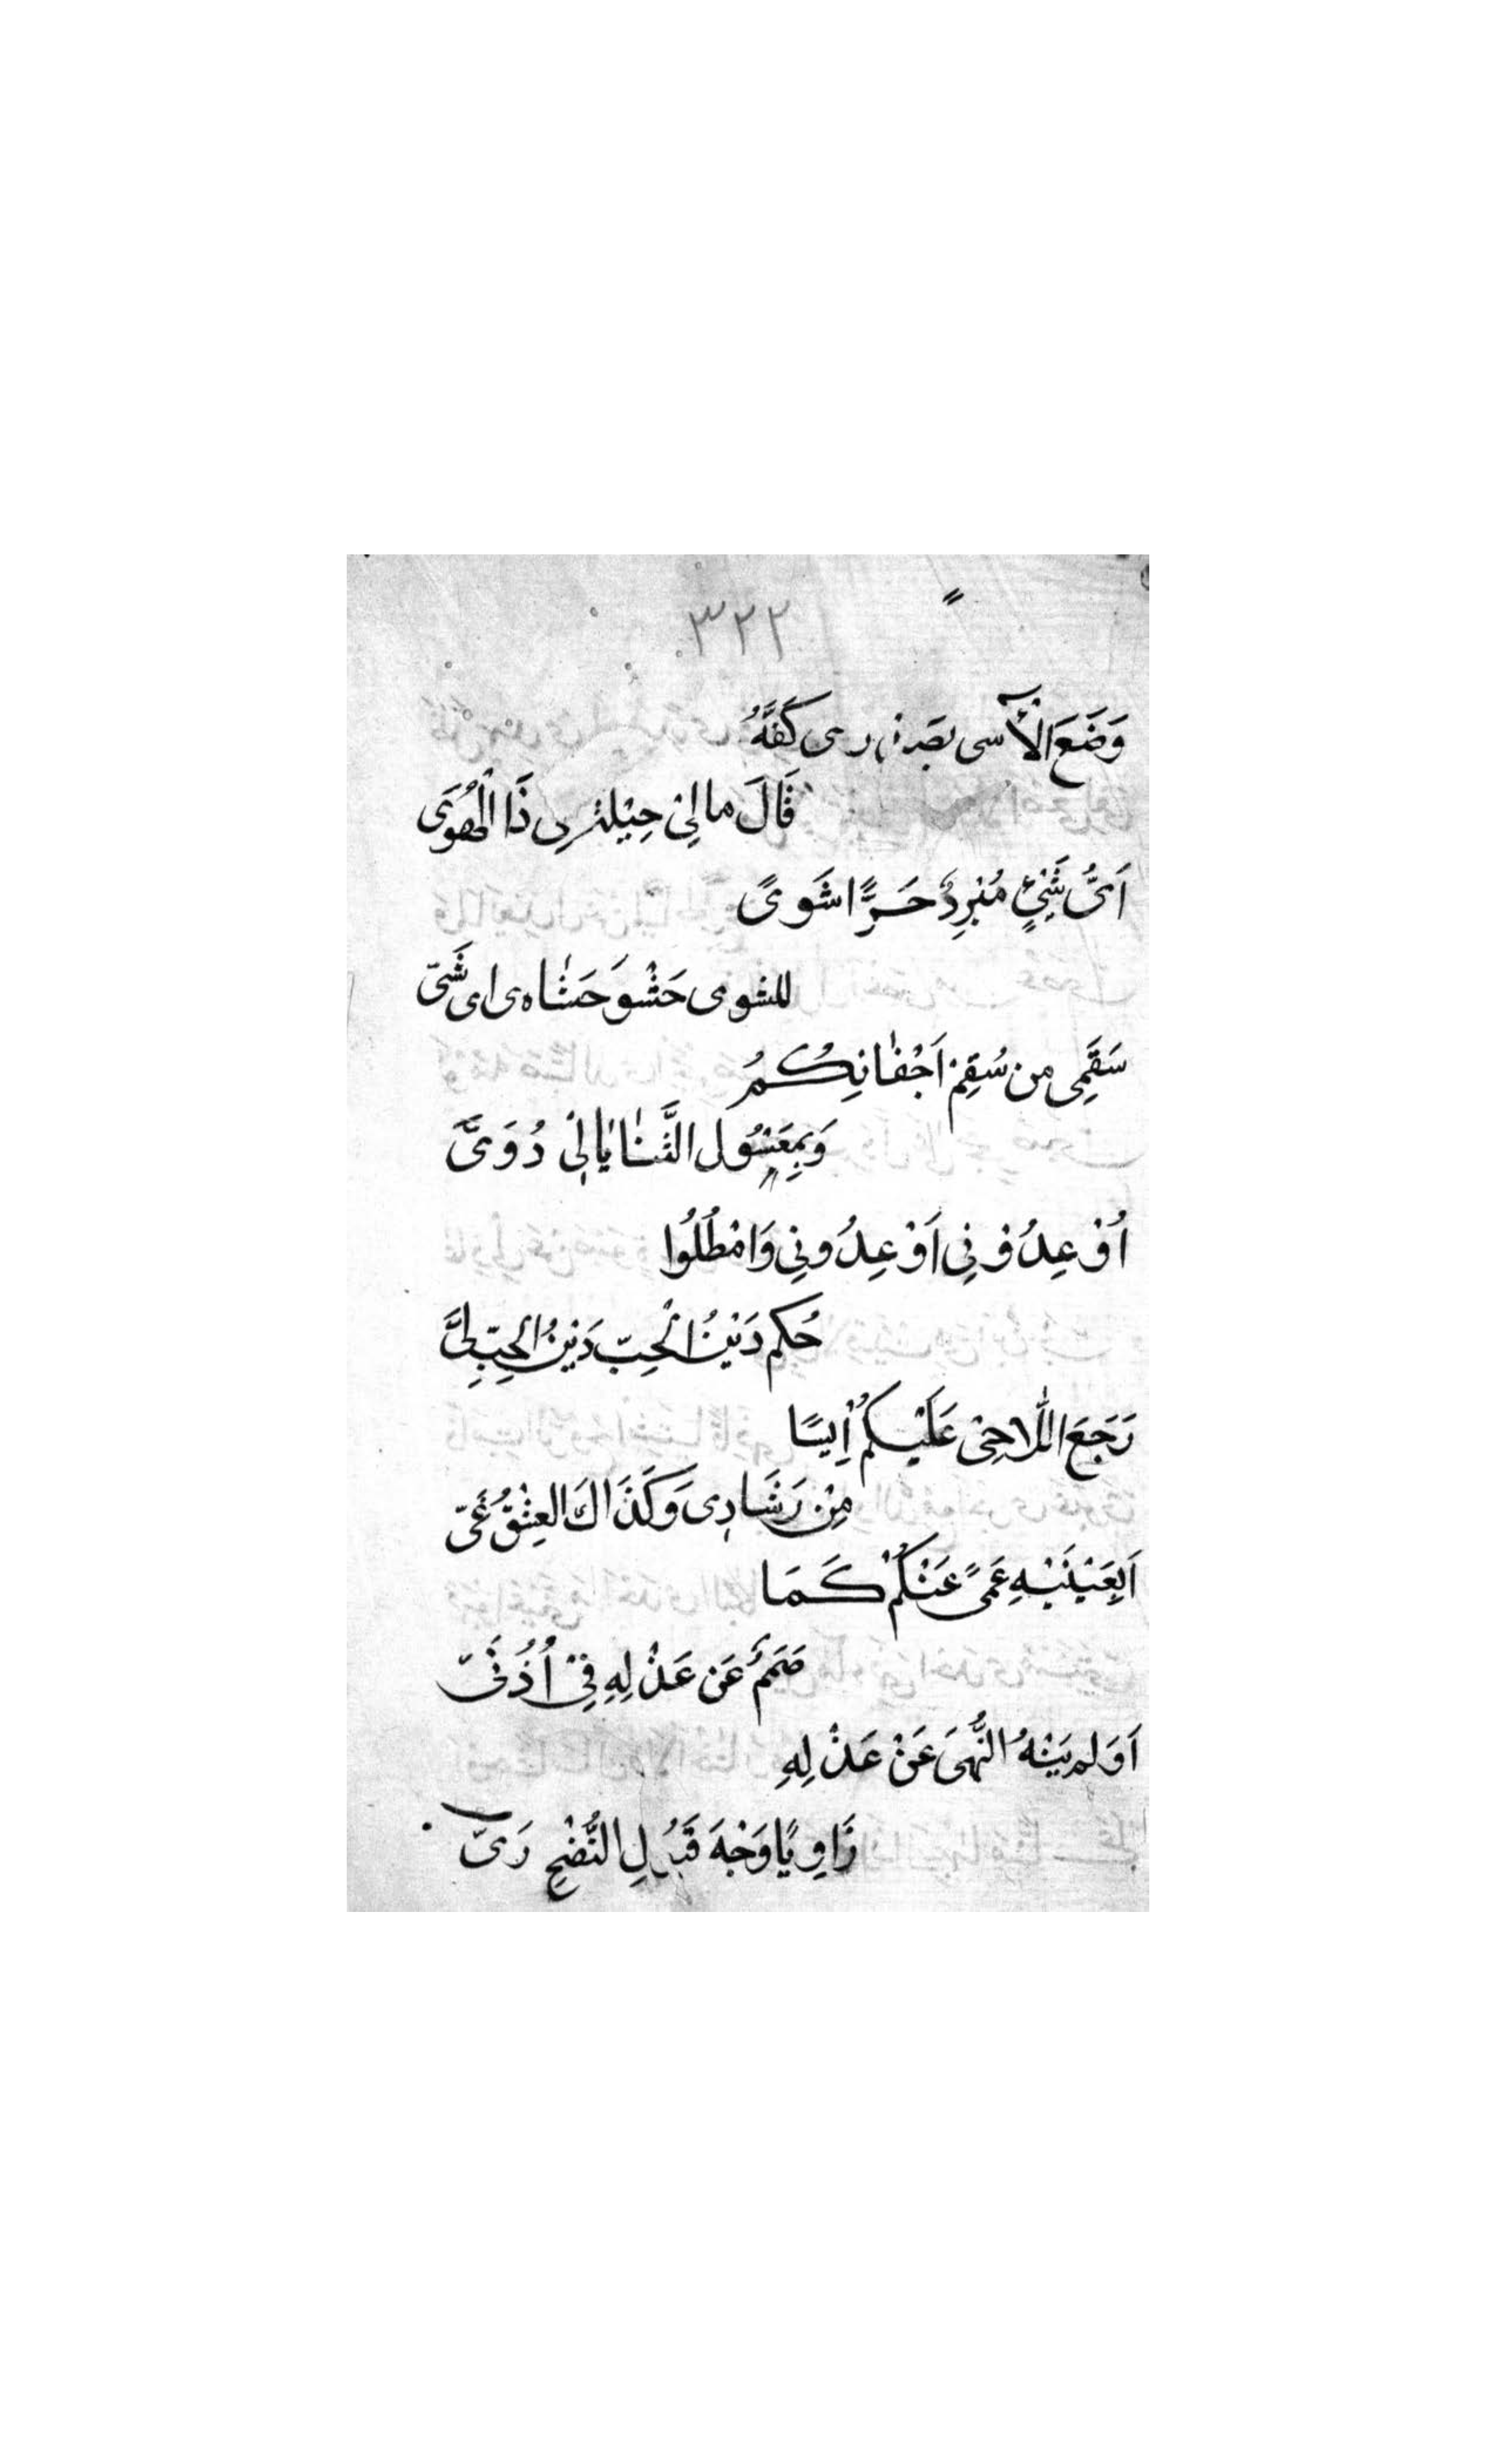 ٣٢٢
وَضَعَ الْآسى بصدرى كَفَّهُ
قَالَ مالِىْ حِيْلة فى ذَا الْهُوَى
اَىُّ شَىْءٍ مُبْرِدٌ حَرًّا شَوىً
للشوى حَشْوَ حَشَاى اى شَىّ
سَقَمِى من سُقمِ اَجْفَانِكُمُ
وَبِمَعْسُولِ الثَّنَايَا لِىْ دُوَىَّ
اَوْعِدُوْنِى اَوْ عِدُونِى وَامْطُلُوا
حُكم دَيْنُ الْحِبّ دَيْنُ الحِبِّ لَىَّ
رَجَعَ اللَّاحِىْ عَلَيْكُمْ اٰيِسًا
مِنْ رَشَادِى وَكَذَاكَ العِشْقُ غَىّ
اَبِعَيْنَيْهِ عَمىً عَنْكُمْ كَمَا
صَمَمٌ عَن عَذْلِهِ فِىْ اُذُنَىّ
اَوَلم يَنْهُ النُّهَى عَنْ عَذْلِهِ
زَاوِيًا وَجْهَ قَبُولِ النُّصْحِ زَىّ